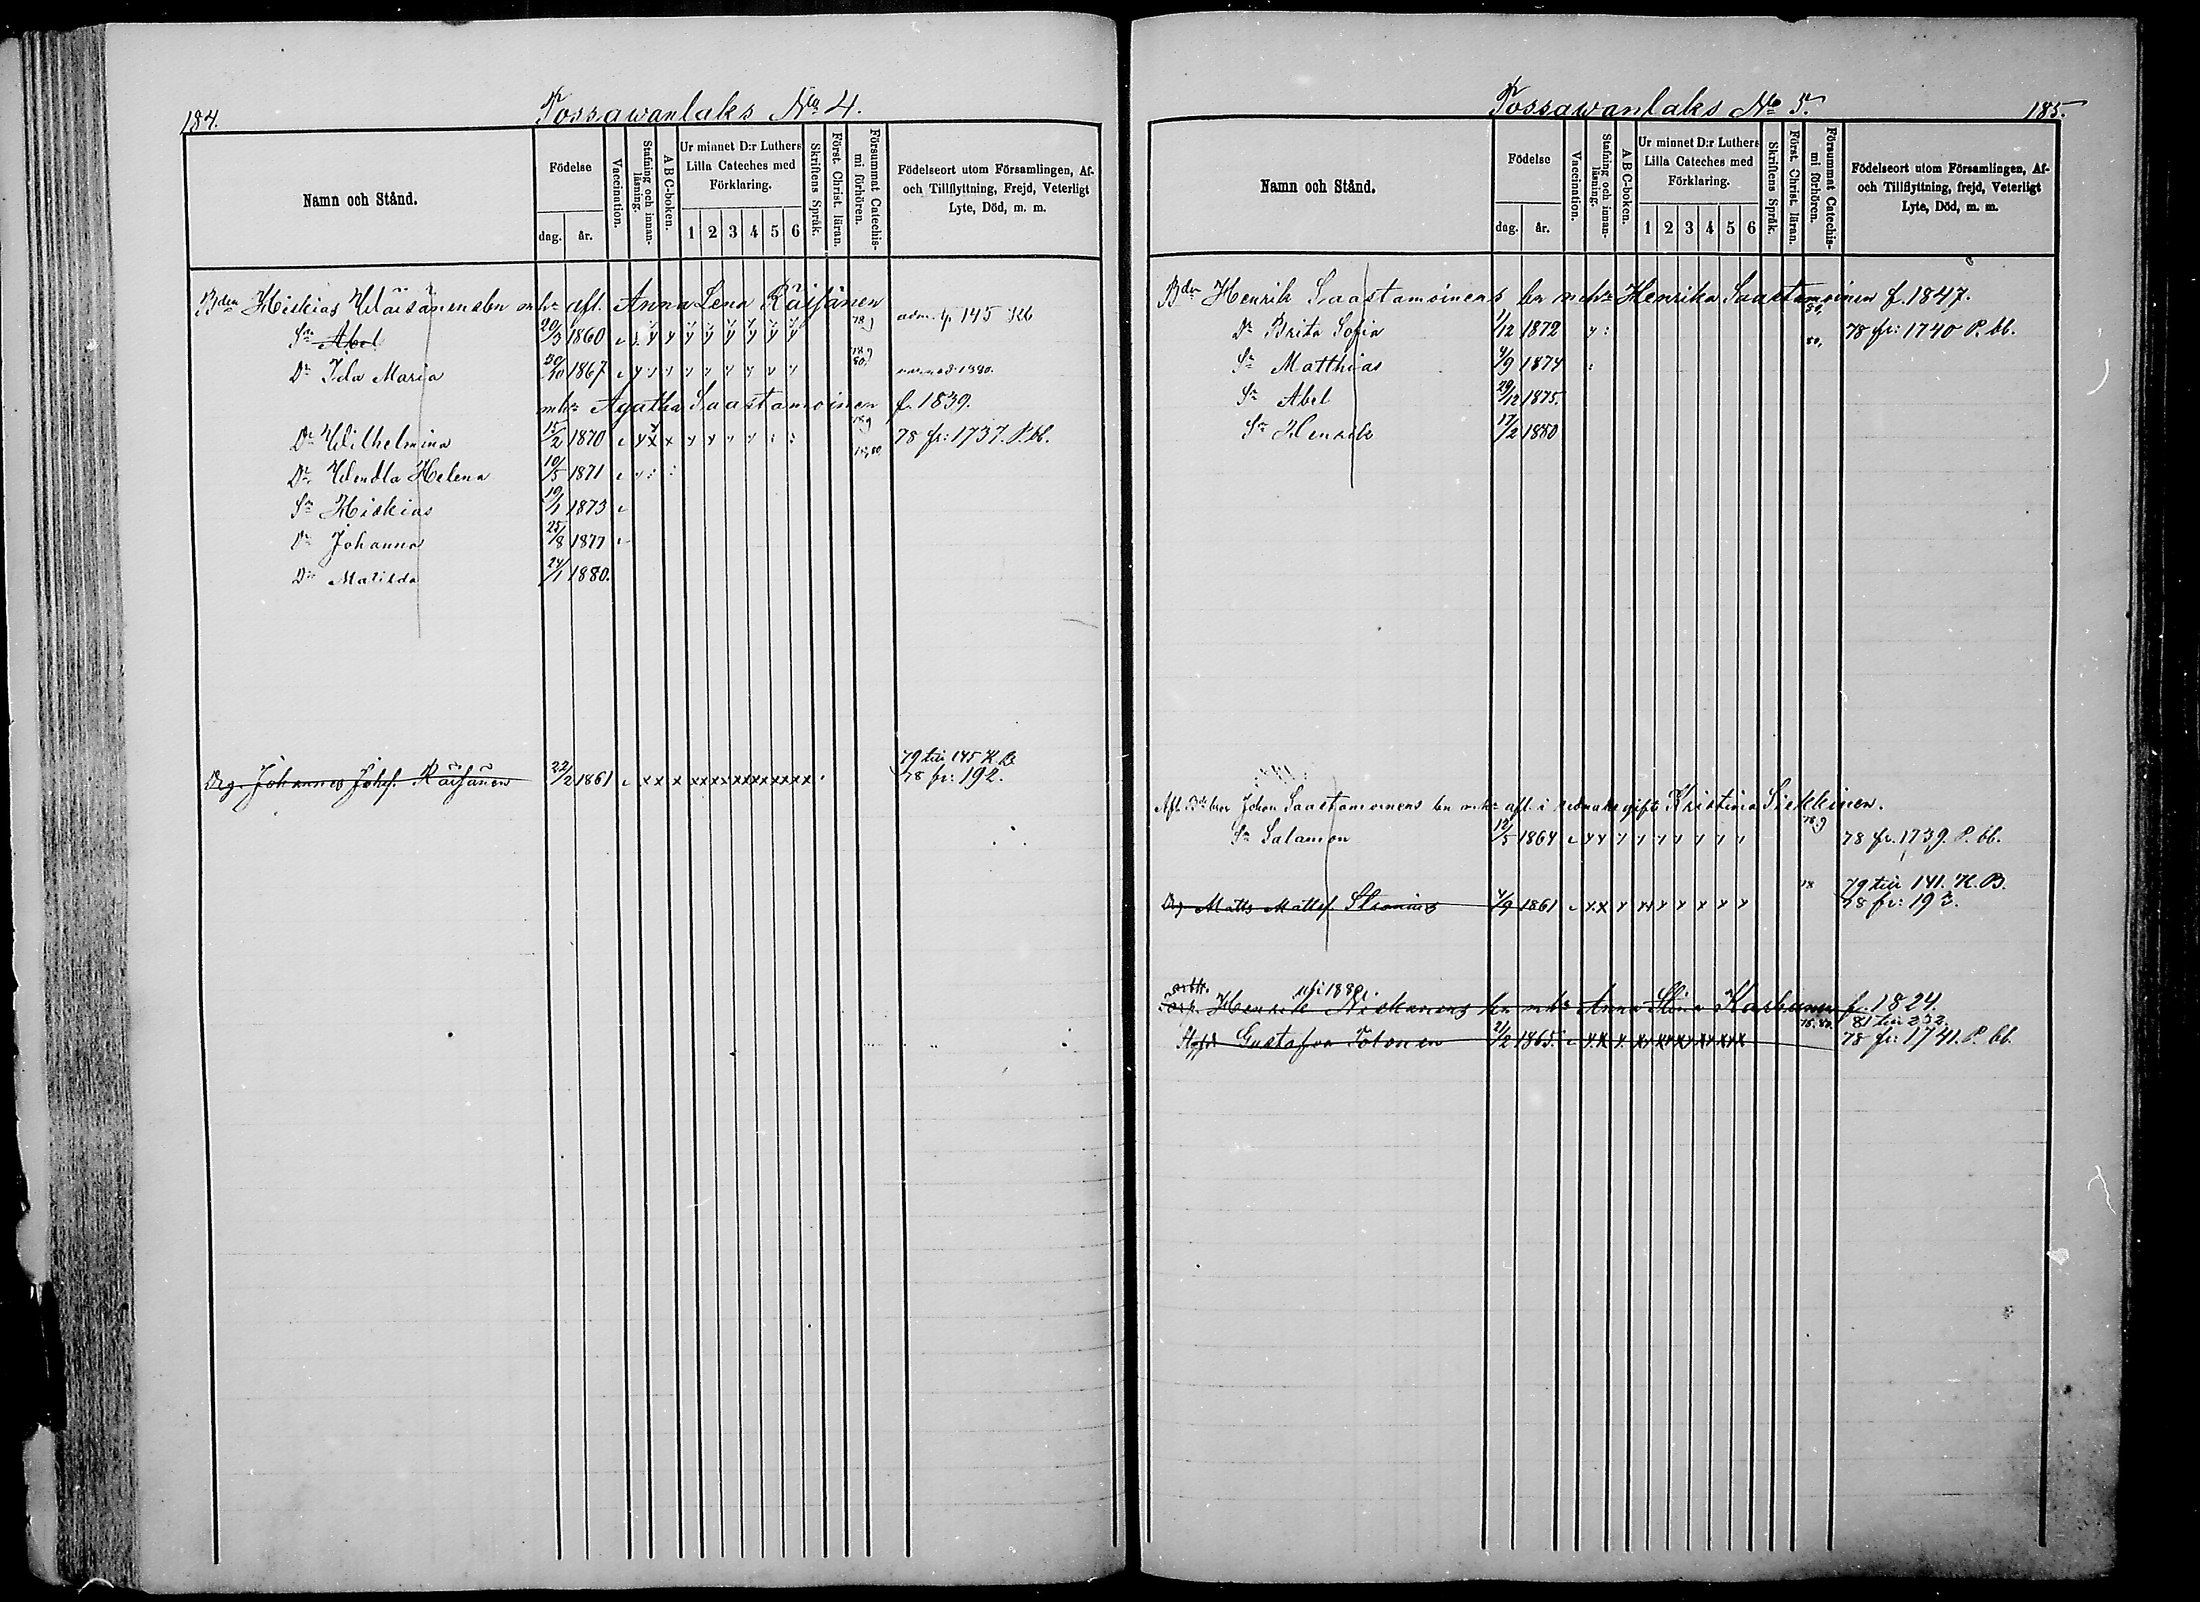 184.
Tossawanlaks No 4.
Namn och Stånd.
Födelse
dag. år.
Vaccination.
Stafning och innanläsning.
A B C-boken.
Ur minnet D:r Luthers Lilla Cateches med Förklaring.
1 2 3 4 5 6
Skriftens Språk.
Först. Christ. läran.
Försummat Catechismi förhören.
Födelseort utom Församlingen, Af- och Tillflyttning, Frejd, Veterligt Lyte, Död, m. m.
Bden Hiskias Wäisänens bn m. hr. afl. Anna Lena Räisänen
Sn Abel 20/3 1860 78,9 adm. p. 145 Kb
Dr Ida Maria 1867 78,9 80.
m. hr Agatha Saastamoinen f. 1839.
Dr Wilhelmina 15/2 1870 78 fr: 1737. P. bb.
Dr Wendla Helena 10/5 1871
Sn Hiskias 19/1 1873
Dr Johanna 25/8 1877
Dr Matilda 24/1 1880.
79 till 145 K B
Drg. Johannes Johs. Räisänen 22/2 1861 78 fr: 192.
Tossawanlaks No 5.
185.
Namn och Stånd.
Födelse
dag. år.
Vaccination.
Stafning och innanläsning.
A B C-boken.
Ur minnet D:r Luthers Lilla Cateches med Förklaring.
1 2 3 4 5 6
Skriftens Språk.
Först. Christ. läran.
Försummat Catechismi förhören.
Födelseort utom Församlingen, Af- och Tillflyttning, frejd, Veterligt Lyte, Död, m. m.
Bden Henrik Saastamoinens bn m hr Henrika Saastamoinen f. 1847.
Dr Brita Sofia 1/12 1872 80, 78 fr: 1740 P. bb.
Sn Matthias 4/9 1874 80,
Sn Abel 29/12 1875.
Sn Henrik 17/2 1880
Afl. Bden Johan Saastamoinens bn m hr afl. i gift Kristina Sikkinen.
Sn Salamon 12/5 1864 78,9 78 fr. 1739. P. bb.
79 till 141. K. B.
Drg Matts Matts. 4/9 1861 78 78 fr: 193.
Henrik Niskanens bn m hr Anna Stina Karhunen f. 1824.
81 till 232.
Gustafva Tolonen 21/2 1865. 78 fr: 1741. P. bb.